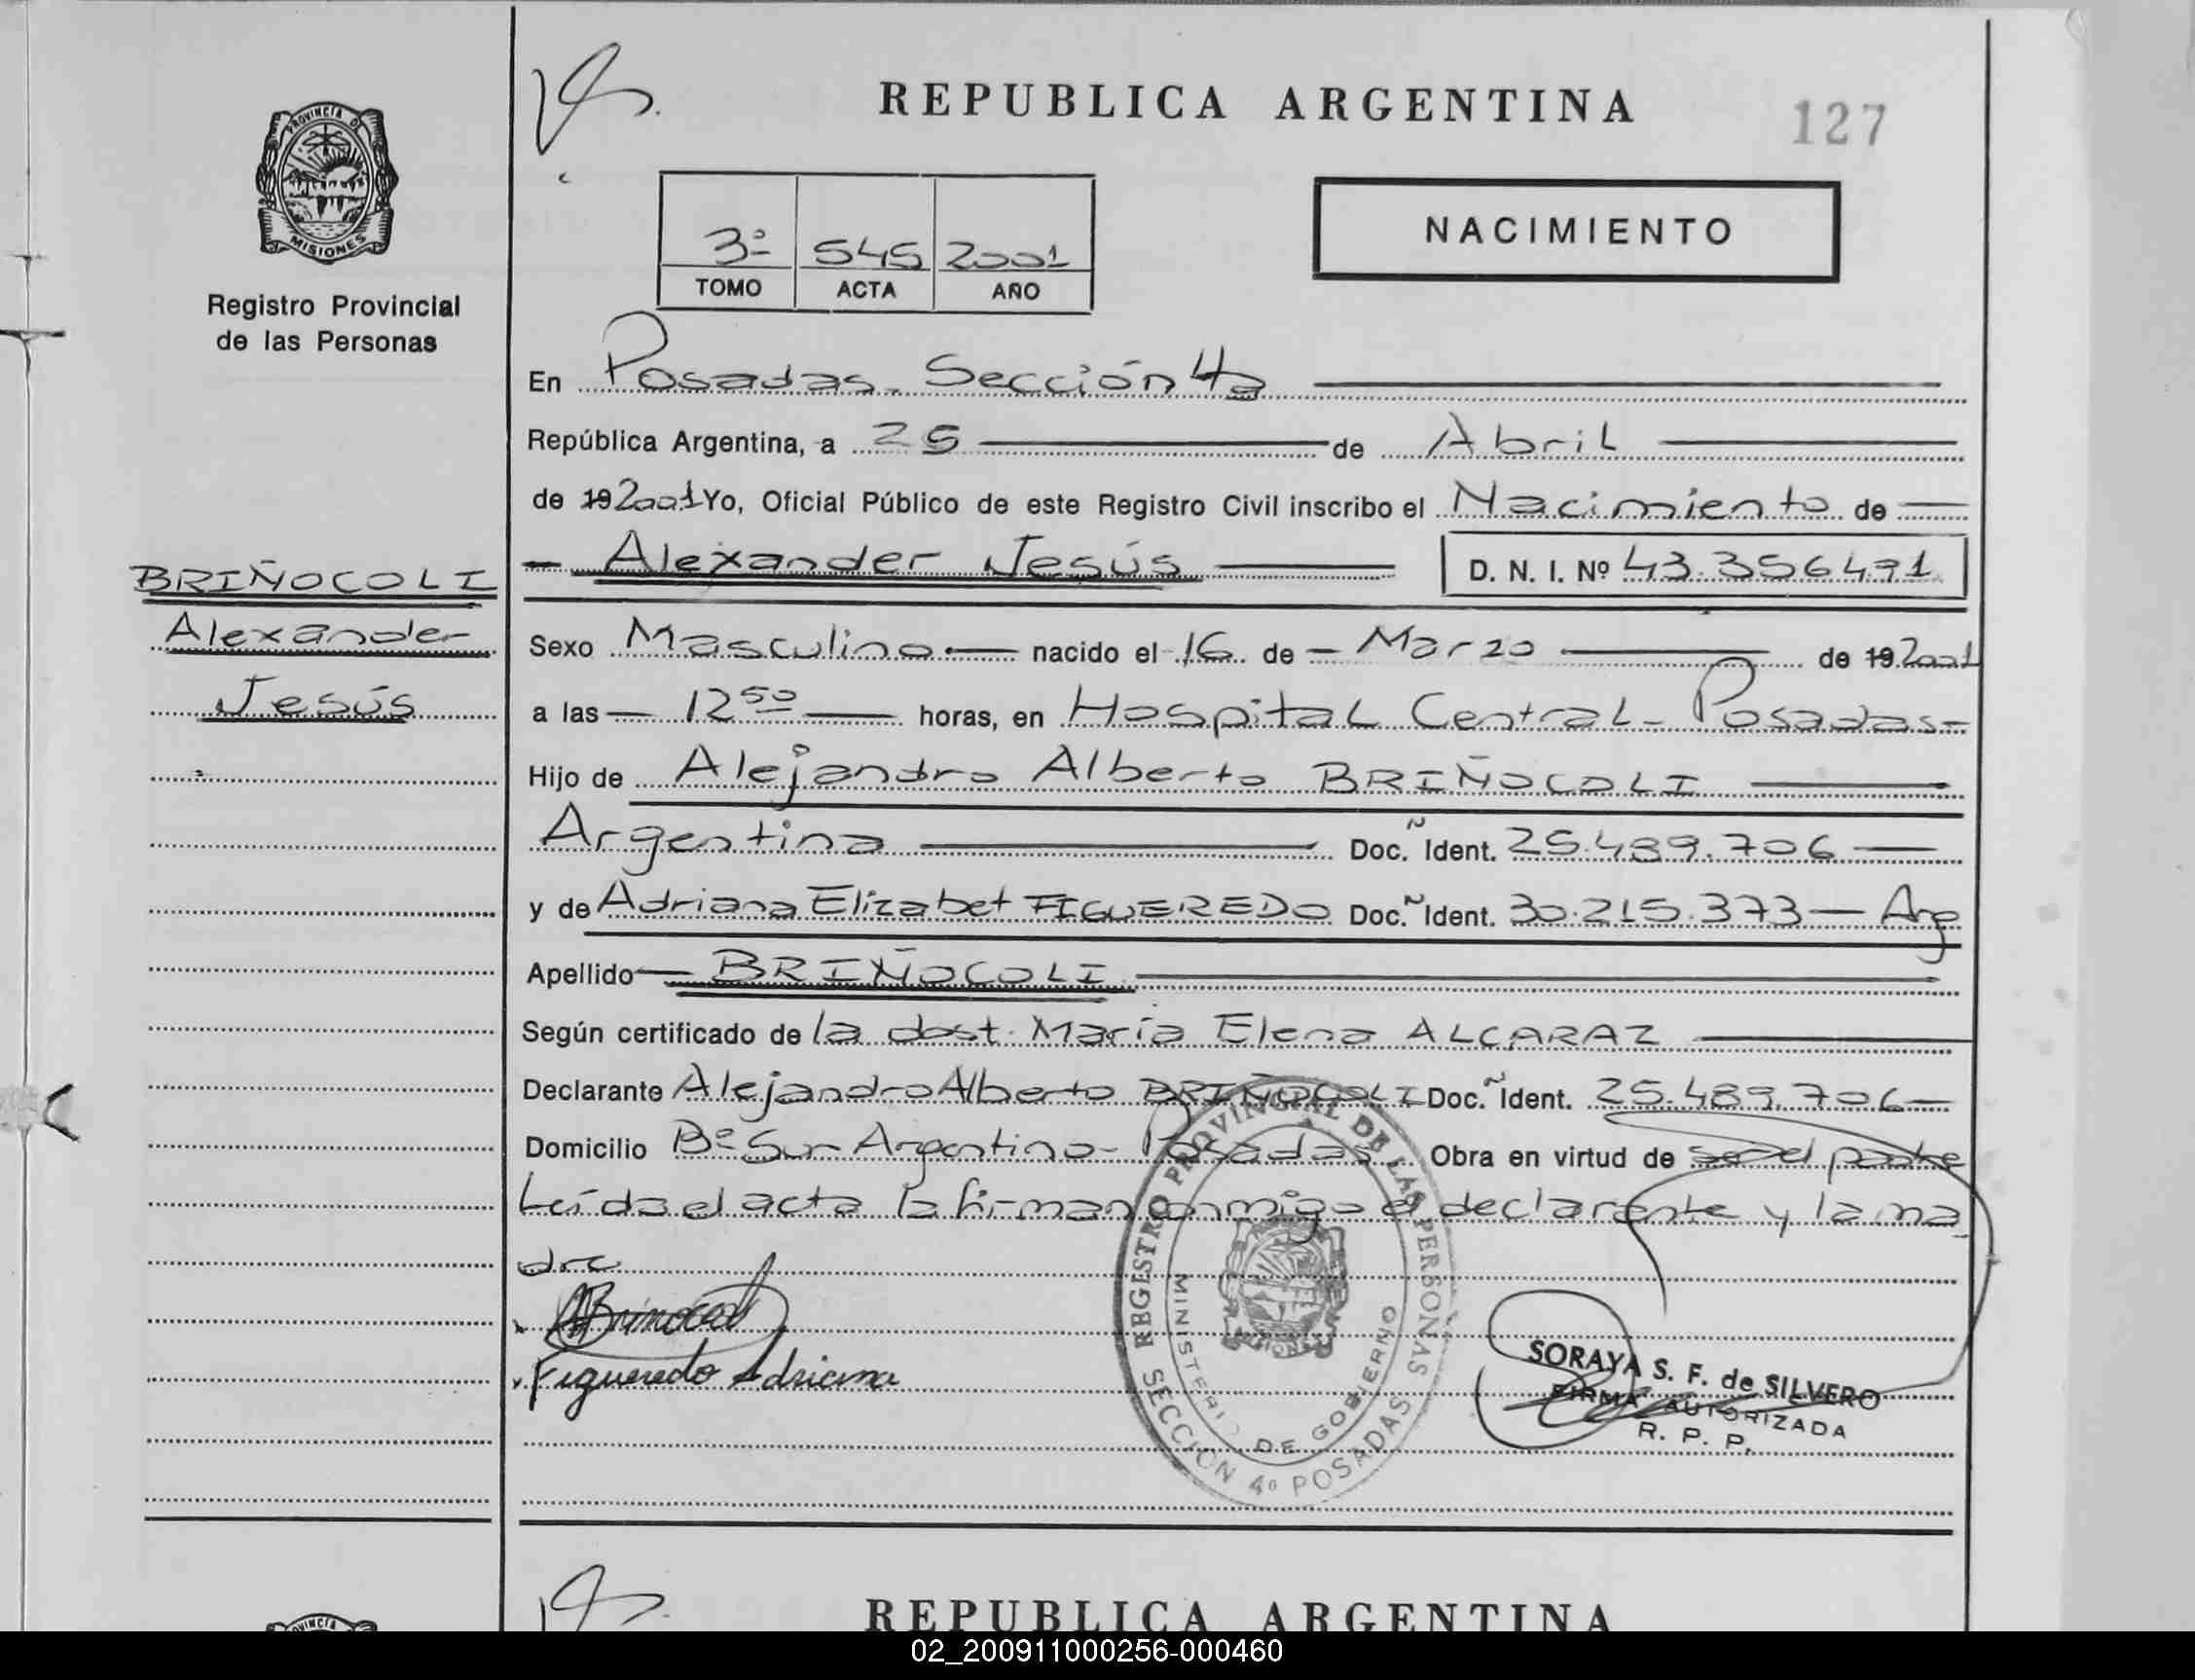 REPUBLICA ARGENTINA
127
PROVINCIA DE
MISIONES
Registro Provincial
de las Personas
3º 545 2001
TOMO ACTA AÑO
NACIMIENTO
En Posadas - Sección 4a
República Argentina, a 25 de Abril
de 19 2001 Yo, Oficial Público de este Registro Civil inscribo el Nacimiento de
Alexander Jesús D. N. I. Nº 43.356.491
BRIÑOCOLI
Alexander
Jesús
Sexo Masculino nacido el 16 de Marzo de 19 2001
a las 12 50 horas, en Hospital Central - Posadas -
Hijo de Alejandro Alberto BRIÑOCOLI
Argentina Doc. Ident. 25.489.706
y de Adriana Elizabet FIGUEREDO Doc. Ident. 30.215.373 - Arg
Apellido BRIÑOCOLI
Según certificado de la obst. María Elena ALCARAZ
Declarante Alejandro Alberto BRIÑOCOLI Doc. Ident. 25.489.706
Domicilio Bº Sur Argentino - Posadas Obra en virtud de ser el padre
Leída el acta la firman conmigo el declarante y la ma
dre
ABrinocoli
Figueredo Adriana
REGISTRO PROVINCIAL DE LAS PERSONAS
MINISTERIO DE GOBIERNO
SECCION 4º POSADAS
SORAYA S. F. de SILVERO
FIRMA AUTORIZADA
R. P. P.
REPUBLICA ARGENTINA
02_200911000256-000460